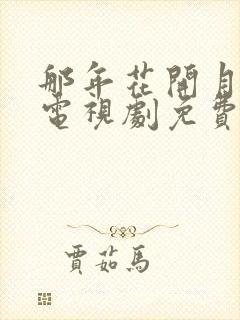 那年花開月
電視劇免費
賈茹馬